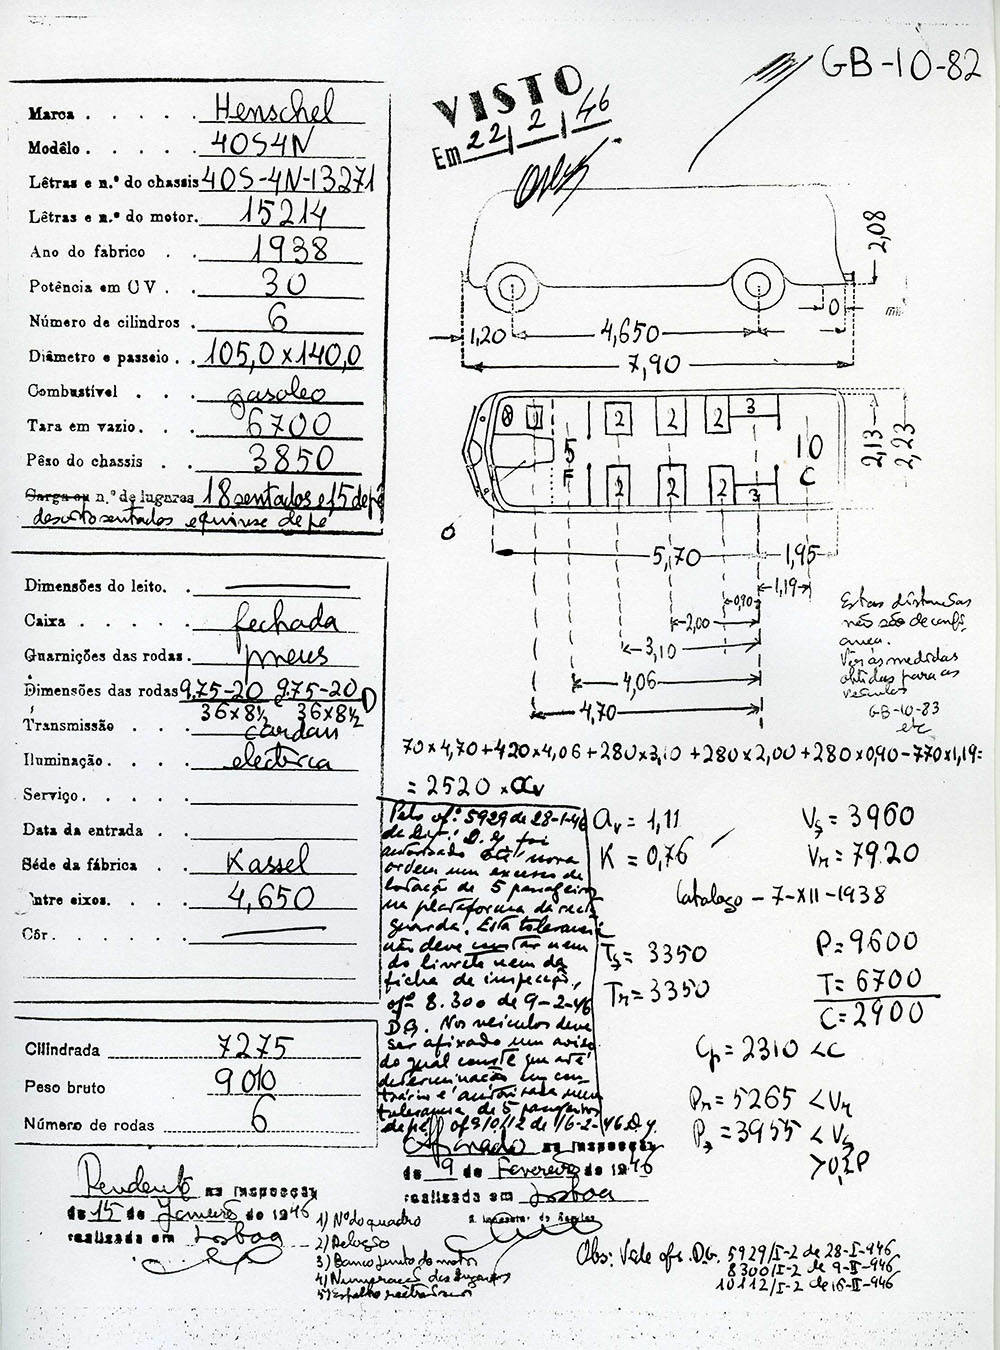 GB-10-82
VISTO
Em 22/2/46
Marca Henschel
Modêlo 40S4N
Lêtras e n.º do chassis 40S-4N-13271
Lêtras e n.º do motor. 15214
Ano do fabrico 1938
Potência em CV 30
Número de cilindros 6
Diâmetro e passeio 105,0x140,0
Combustível gasoleo
Tara em vazio 6700
Pêso do chassis 3850
Carga ou n.º de lugares 18 sentados e 15 de pé
desoito sentados e quinze de pé
Dimensões do leito.
Caixa fechada
Guarnições das rodas pneus
Dimensões das rodas 9,75-20 9.75-20 D
36x8½ 36x8½
Transmissão cardan
Iluminação electrica
Serviço
Data da entrada
Séde da fábrica Kassel
Entre eixos. 4,650
Côr
Cilindrada 7275
Peso bruto 9010
Número de rodas 6
Pendente na inspecção
de 15 de Janeiro de 1946
realizada em Lisboa
1) Nº do quadro
2) Relogio
3) Banco junto do motor
4) Numeração dos lugares
5)
2,08
0
1,20 4,650
7,90
1 2 2 2 3
5 F
10 C
2 2 2 3
2,13 2,23
5,70 1,95
1,19
0,90
2,00
3,10
4,06
4,70
Estas distancias
não são de confi
ança.
Ver as medidas
obtidas para os
veiculos
GB-10-83
etc
70x4,70+420x4,06+280x3,10+280x2,00+280x0,90-770x1,19=
= 2520 x av
Pelo of.º 5929 de 28-1-46
da D.G. foi
autorizado até nova
ordem um excesso de
lotação de 5 passageiros
na plataforma da recta
guarda. Esta tolerancia
não deve constar nem
do livrete nem da
ficha de inspecção,
ofº 8.300 de 9-2-46
D.G. Nos veiculos deve
ser afixado um aviso
do qual conste que até
determinação em con
trário é autorizada uma
tolerancia de 5 passageiros
de pé of 10112 de 16-2-46 D.G.
av = 1,11
K = 0,76
Vf = 3960
Vr = 7920
Catalogo - 7-XII-1938
Tf = 3350
Tr = 3350
P = 9600
T = 6700
C = 2900
Cp = 2310 < C
Pr = 5265 < Vr
Pf = 3955 < Vf
> 0,2P
Aprovado na inspecção
de 9 de Fevereiro de 1946
realizada em Lisboa
Obs: Vide ofs. D.G. 5929/I-2 de 28-I-946
8300/I-2 de 9-II-946
10112/I-2 de 16-II-946